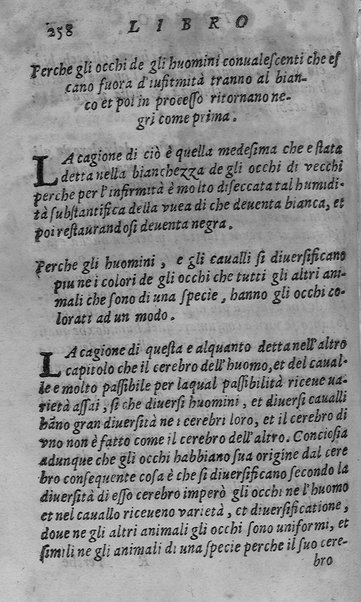 258 LIBRO
Perche gli occhi de gli huomini conualescenti che es
cano fuora d'iufitmità tranno al bian-
co et poi in processo ritornano ne-
gri come prima.
LA cagione di ciò è quella medesima che e stata
detta nella bianchezza de gli occhi di vecchi
perche per l'infirmità è molto diseccata tal humidi
tà substantifica della vuea di che deuenta bianca, et
poi restaurandosi deuenta negra.
Perche gli huomini, e gli caualli si diuersificano
piu ne i colori de gli occhi che tutti gli altri ani-
mali che sono di una specie, hanno gli occhi co-
lorati ad un modo.
LA cagione di questa e alquanto detta nell'altro
capitolo che il cerebro dell'huomo, et del caual-
le e molto passibile per laqual passibilità riceue ua-
rietà assai, si che diuersi huomini, et diuersi caualli
hāno gran diuersità ne i cerebri loro, et il cerebro di
vno non è fatto come il cerebro dell'altro. Conciosia
adunque che gli occhi habbiano sua origine dal cere
bro consequente cosa è che si diuersificano secondo la
diuersità di esso cerebro imperò gli occhi ne l'huomo
et nel cauallo riceueno varietà, et diuersificatione,
doue ne gli altri animali gli occhi sono uniformi, et
simili ne gli animali di una specie perche il suo cere-
bro